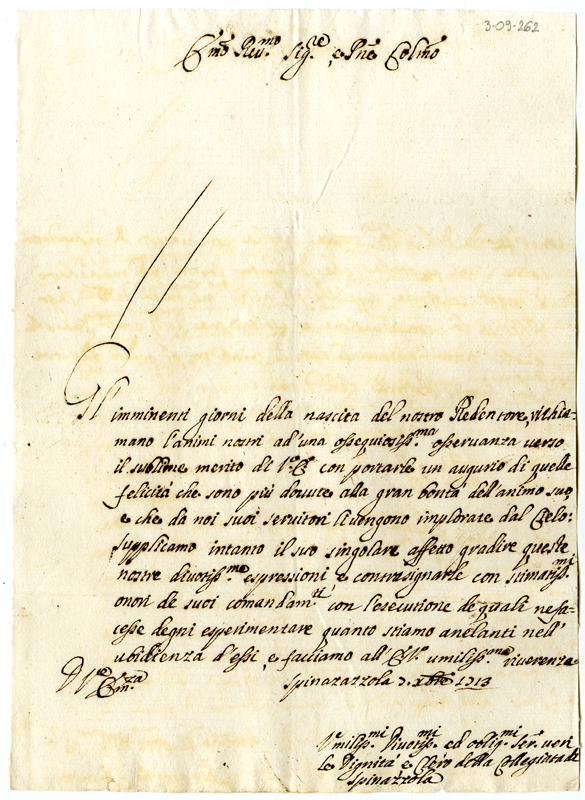 3-09-262
Emo Reu.mo Sig.re, e Pne Colmo
Gl'imminenti giorni della nascita del nostro Redentore, richia=
mano l'animi nostri ad'una ossequiosiss.ma osseruanza uerso
il sublime merito di V.E. con portarle un augurio di quelle
felicità che sono più douute alla gran bontà dell'animo suo,
e che da noi suoi seruitori li uengono implorate dal Cielo.
Supplicamo intanto il suo singolare affetto gradire queste
nostre diuotiss.me espressioni, e contrasignarle con stimatiss.mi
onori de suoi comandam.ti con l'esecutione de quali ne fa=
cesse degni esperimentare quanto stiamo anelanti nell'
ubidienza d'essi, e facciamo all'E.V. umiliss.ma riuerenza
D V.ra Em.za
Spinazzola 7. Xbre 1713
Vmiliss.mi Diuotiss.mi ed oblig.mi Ser.ri ueri
le Dignità e Clero della Collegiata di
Spinazzola